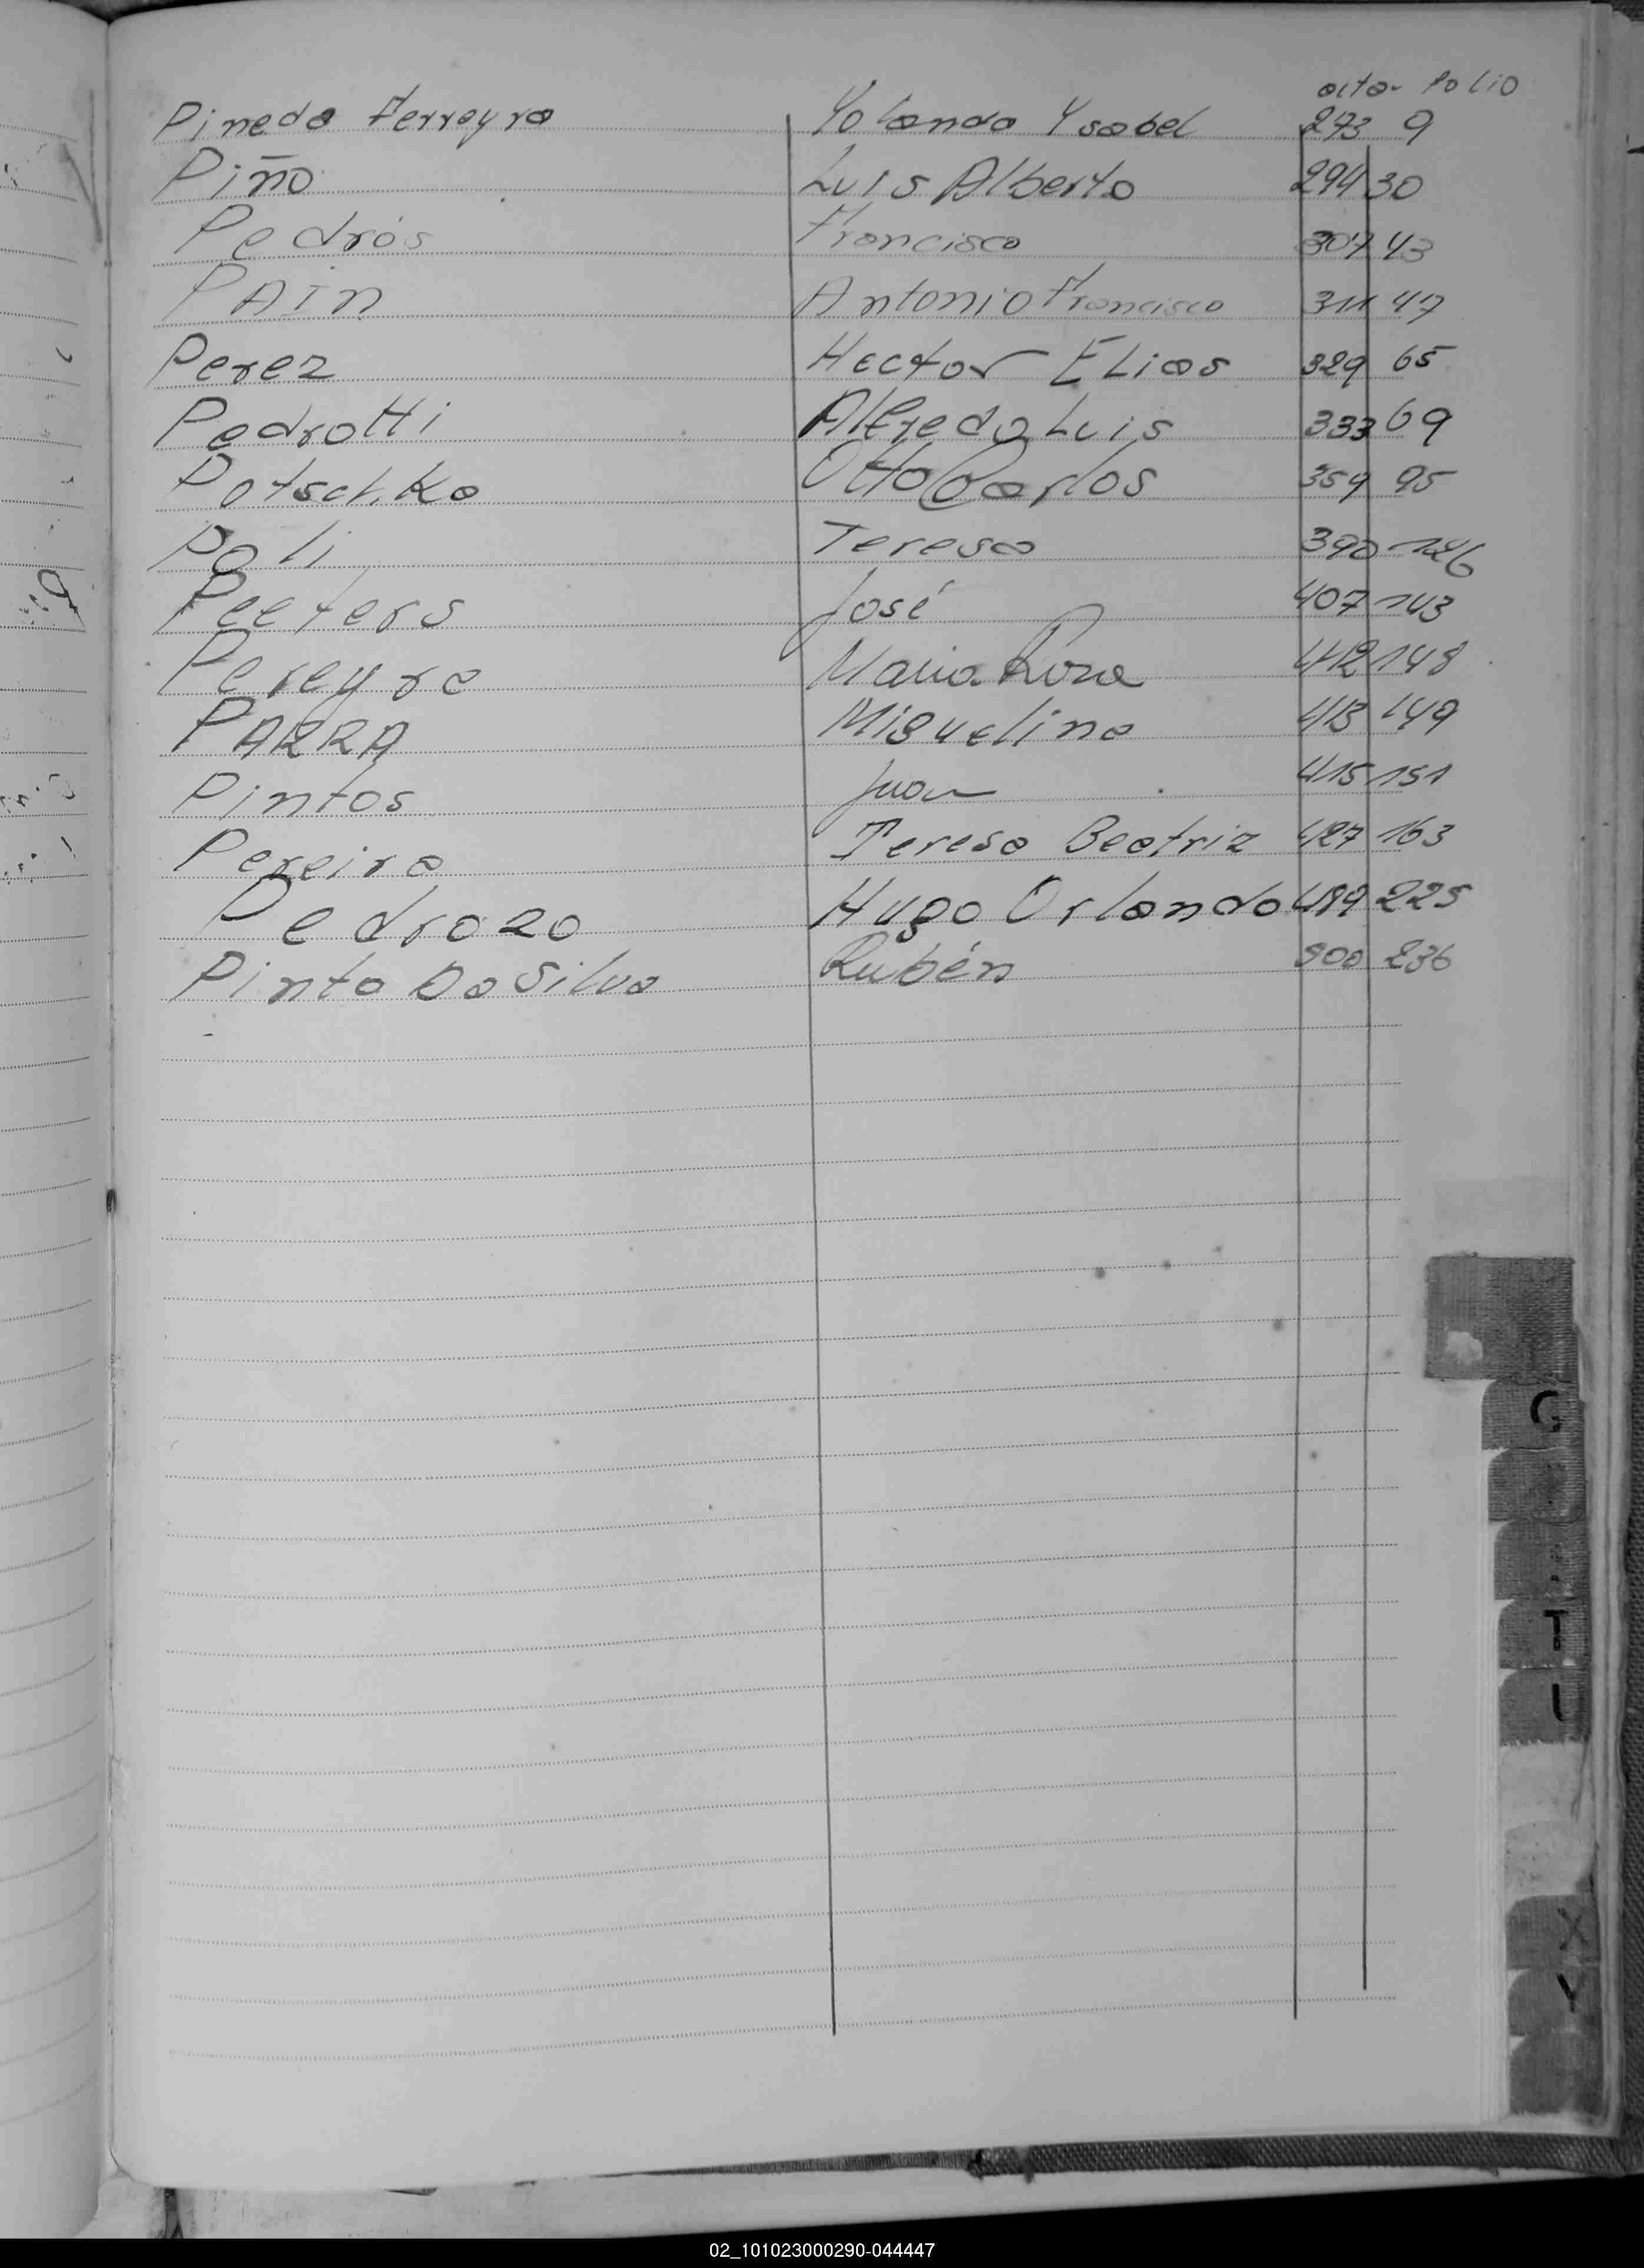 acta folio
Pineda Ferreyra Yolanda Ysabel 273 9
Piño Luis Alberto 294 30
Pedrós Francisco 307 43
PAIN Antonio Francisco 311 47
Perez Hector Elias 329 65
Pedrotti Alfredo Luis 333 69
Potschka Otto Carlos 359 95
Poli Teresa 390 126
Peeters José 407 143
Pereyra Maria Rosa 412 148
PARRA Miguelina 413 149
Pintos Juan 415 151
Pereira Teresa Beatriz 427 163
Pedrozo Hugo Orlando 489 225
Pinto Da Silva Rubén 500 236
T
X
Y
02_101023000290-044447